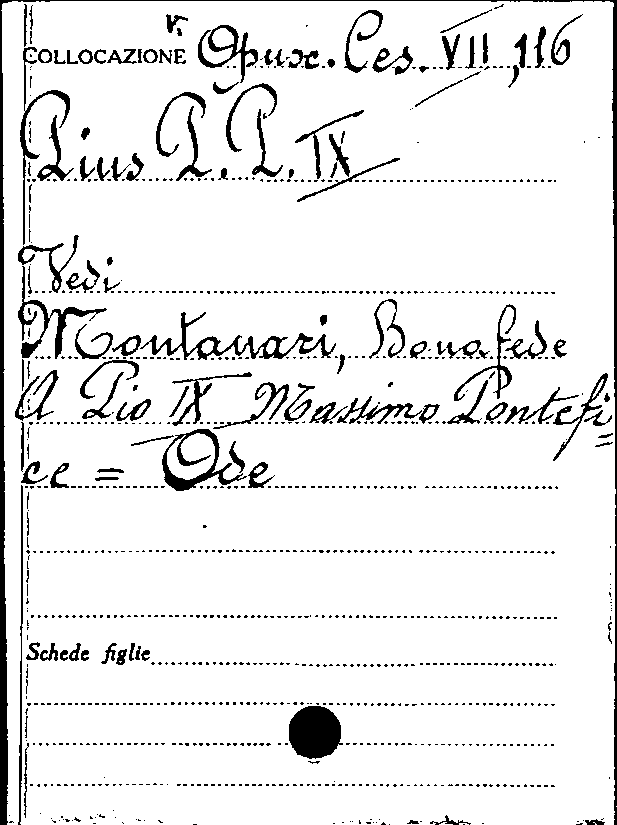 v.
COLLOCAZIONE Opusc. Ces. VII, 116
Pius P. P. IX
Vedi
Montanari, Bonafede
A Pio IX Massimo Pontefi=
ce = Ode
Schede figlie